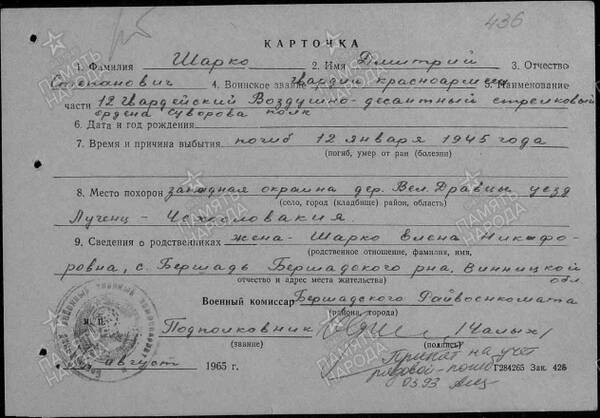 436
КАРТОЧКА
1. Фамилия Шарко 2. Имя Дмитрий 3. Отчество
Степанович 4. Воинское звание гвардии красноармеец 5. Наименование
части 12 Гвардейский Воздушно-десантный стрелковый
ордена Суворова полк
6. Дата и год рождения
7. Время и причина выбытия. погиб 12 января 1945 года
(погиб, умер от ран (болезни)
8. Место похорон западная окраина дер. Вел. Дравцы уезд
(село, город (кладбище) район, область)
Лученц - Чехословакия.
9. Сведения о родственниках жена- Шарко Елена Никифо-
(родственное отношение, фамилия, имя,
ровна, с. Бершадь Бершадского рна. Винницкой обл
отчество и адрес места жительства)
Военный комиссар Бершадского Райвоенкомата
(района, города)
М. П.
Подполковник /Чалых/
(звание) (подпись)
август 1965 г.
Принят на учет
Г284265 Зак. 425
ПАМЯТЬ НАРОДА